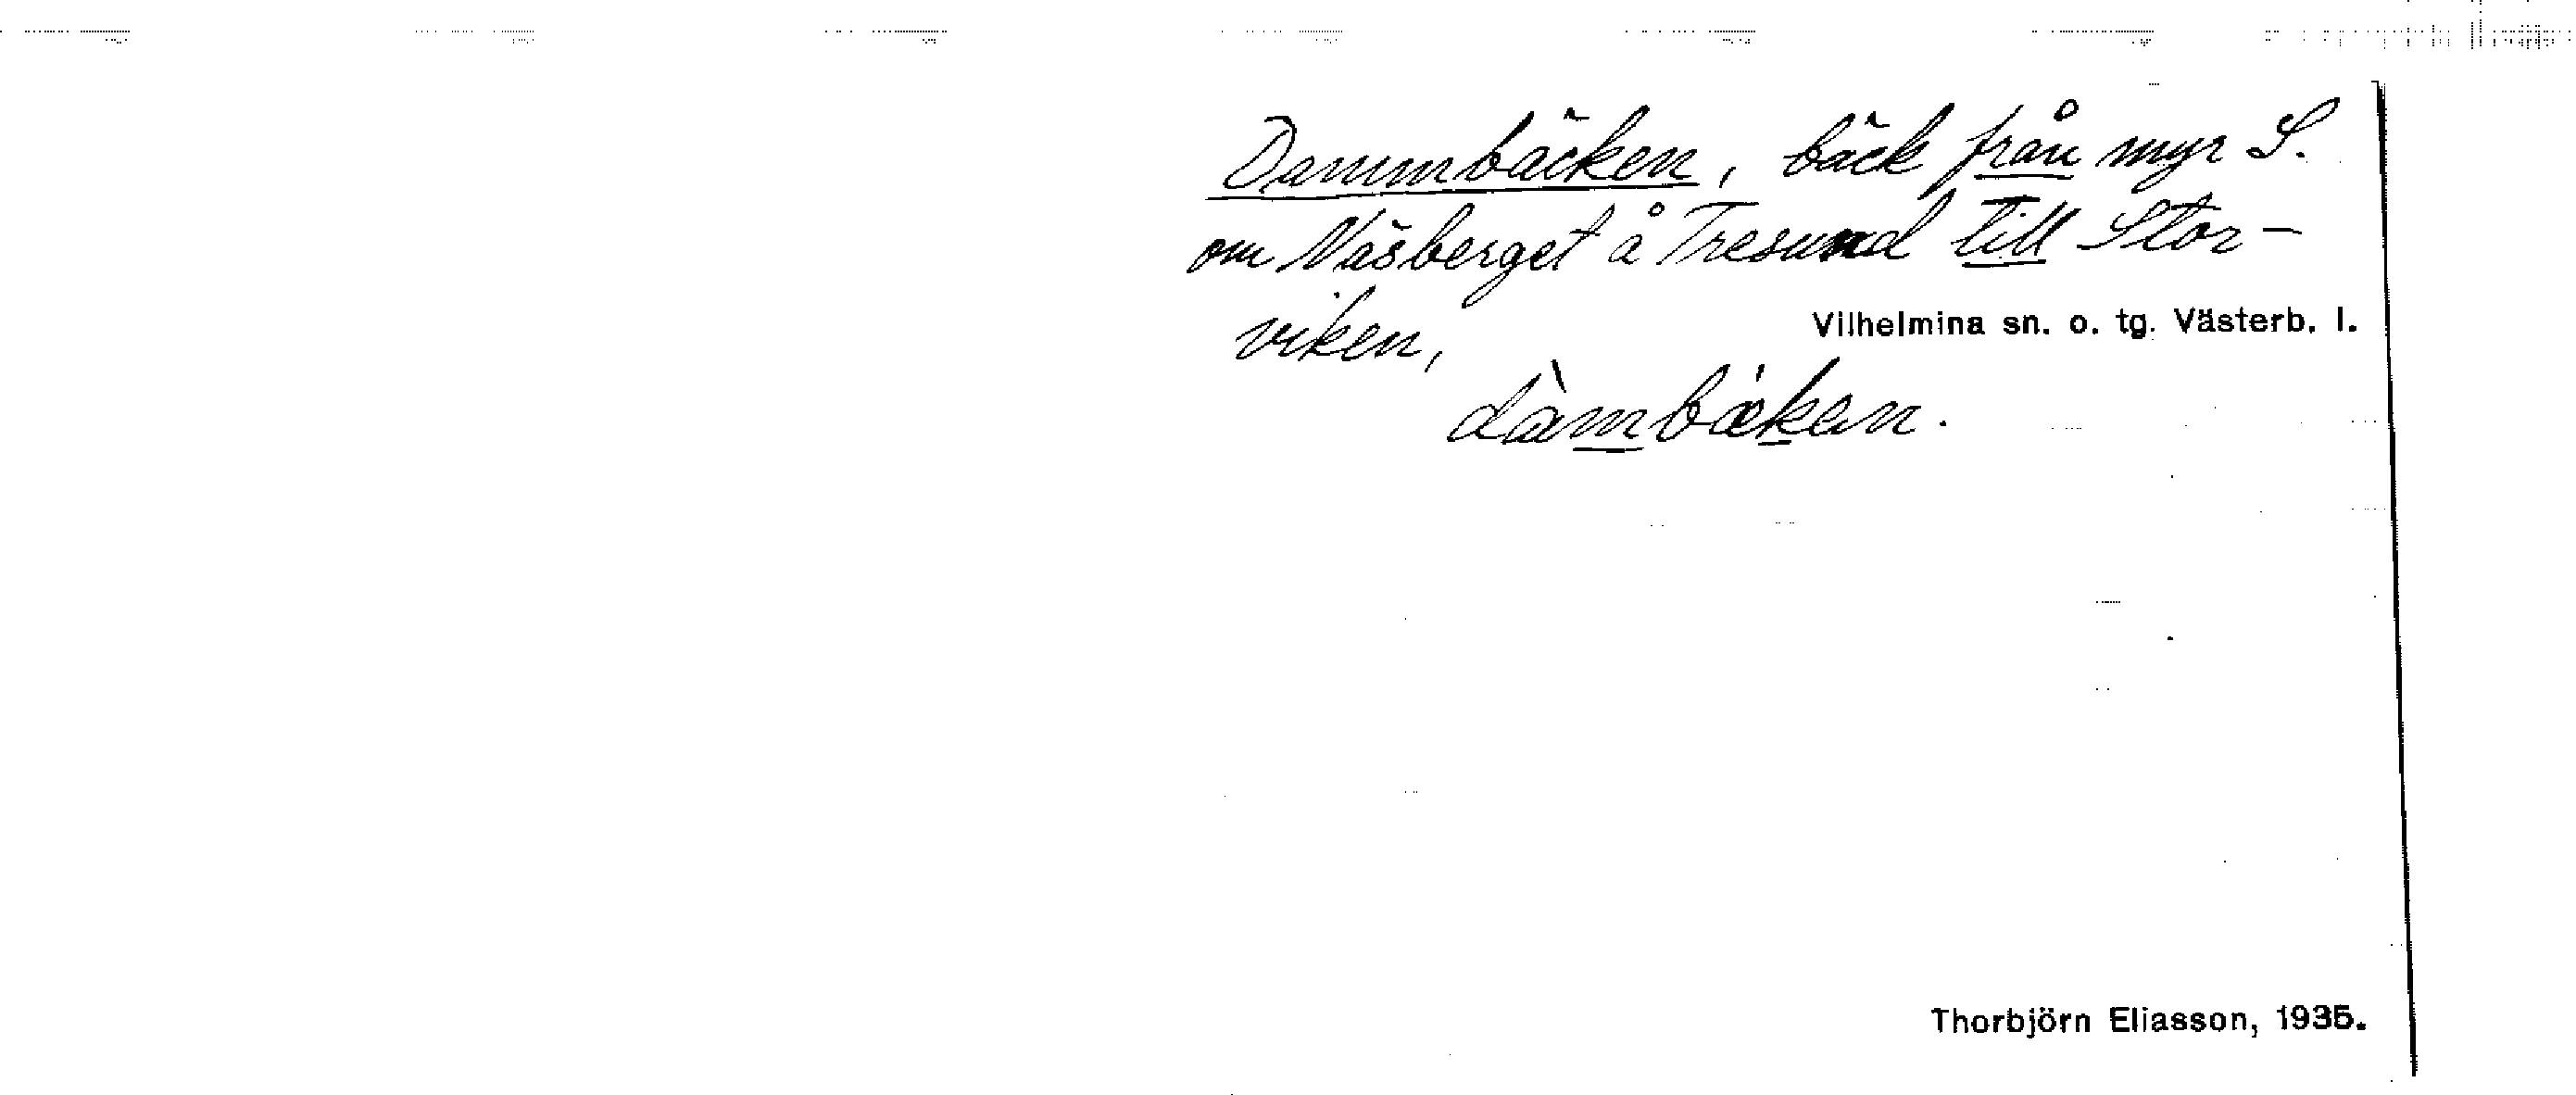 Dammbäcken, bäck från myr S.
om Näsberget å Tresund till Stor-
viken,
Vilhelmina sn. o. tg. Västerb. l.
dàmbækan.
Thorbjörn Eliasson, 1935.